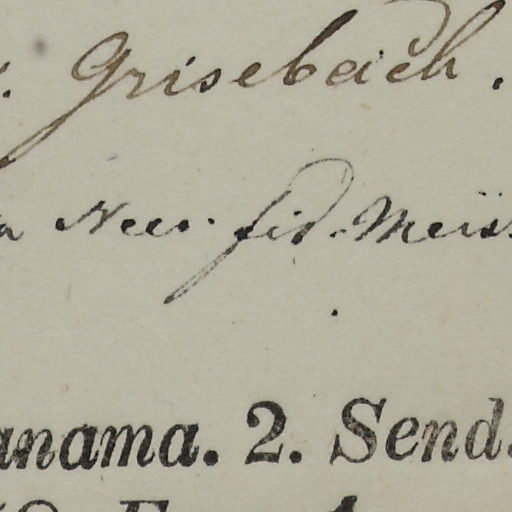 Grisebach.
Nees. fid. Meis
anama. 2. Send.